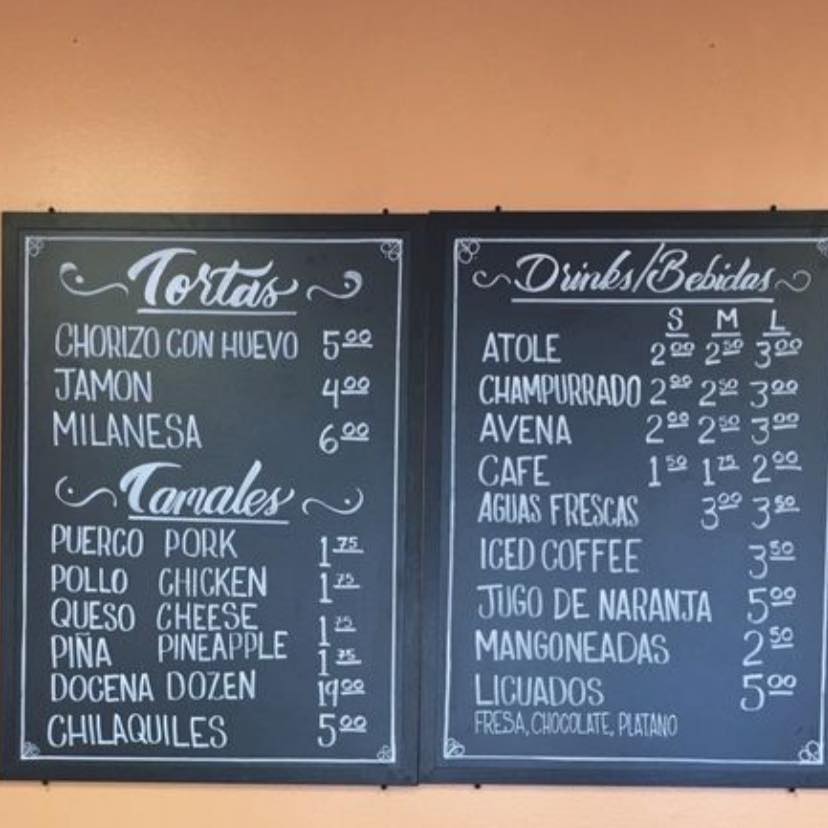 Tortas
CHORIZO CON HUEVO 5.00
JAMON 4.00
MILANESA 6.00
Tamales
PUERCO PORK 1.75
POLLO CHICKEN 1.75
QUESO CHEESE 1.75
PIÑA PINEAPPLE 1.75
DOCENA DOZEN 19.00
CHILAQUILES 5.00
Drinks/Bebidas
S M L
ATOLE 2.00 2.50 3.00
CHAMPURRADO 2.00 2.50 3.00
AVENA 2.00 2.50 3.00
CAFE 1.50 1.75 2.00
AGUAS FRESCAS 3.00 3.50
ICED COFFEE 3.50
JUGO DE NARANJA 5.00
MANGONEADAS 2.50
LICUADOS 5.00
FRESA, CHOCOLATE, PLATANO